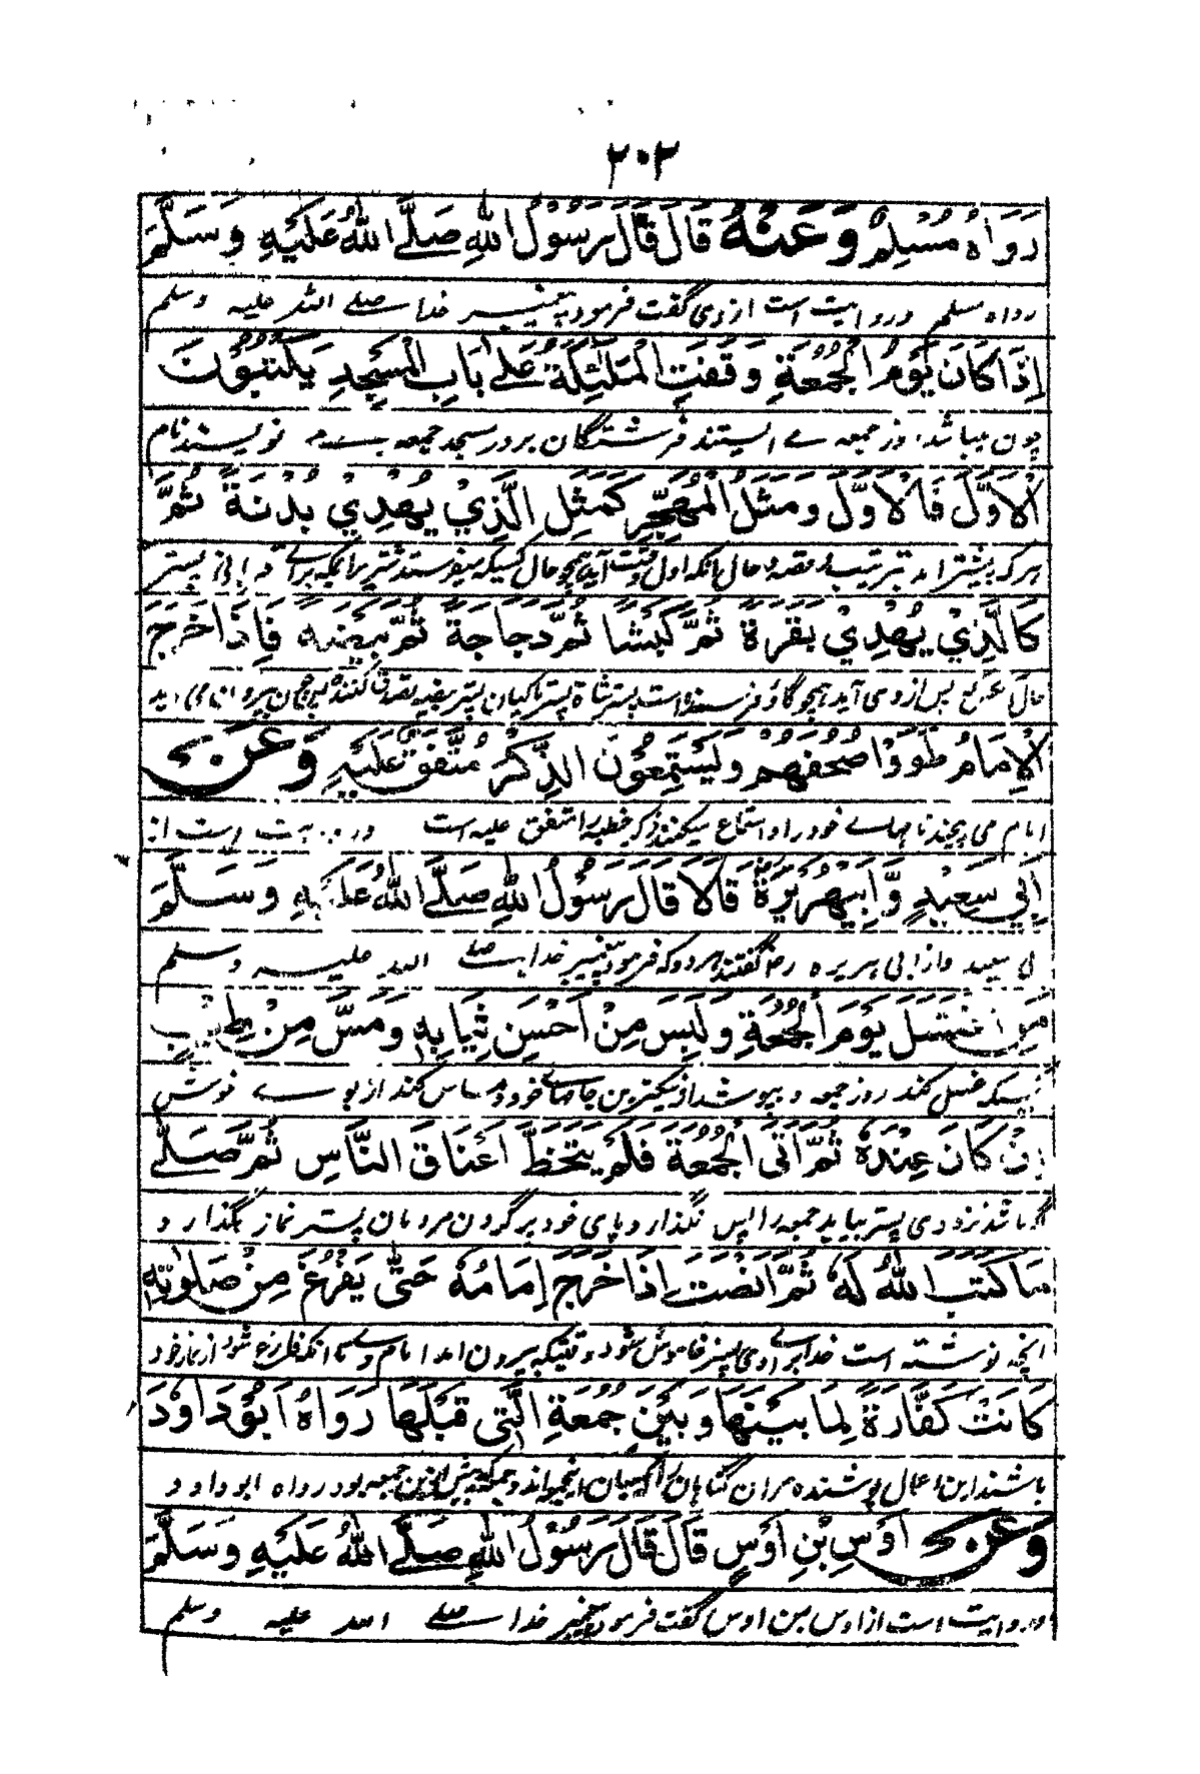 ۲۰۲
رَوَاهُ مُسْلِمٌ وَعَنْهُ قَالَ قَالَ رَسُوْلُ اللهِ صَلَّى اللهُ عَلَيْهِ وَسَلَّمَ
رواه مسلم و روایت است از وی گفت فرمود پیغمبر خدا صلے اللہ علیہ وسلم
اِذَا كَانَ يَوْمُ الْجُمُعَةِ وَقَفَتِ الْمَلٰئِكَةُ عَلٰى بَابِ الْمَسْجِدِ يَكْتُبُوْنَ
چون میباشد روز جمعہ مے ایستند فرشتگان بر در مسجد جمعہ نویسند نام
الْاَوَّلَ فَالْاَوَّلَ وَمَثَلُ الْمُهَجِّرِ كَمَثَلِ الَّذِيْ يُهْدِيْ بُدْنَةً ثُمَّ
ہر کہ پیشتر آمد حال آنکہ اول وقت آید ہمچو حال کسیکہ میفرستد شتر پستر
كَالَّذِيْ يُهْدِيْ بَقَرَةً ثُمَّ كَبْشًا ثُمَّ دَجَاجَةً ثُمَّ بَيْضَةً فَاِذَا خَرَجَ
پس از وی آید ہمچو گاؤ است پستر پستر
الْاِمَامُ طَوَوْا صُحُفَهُمْ وَيَسْتَمِعُوْنَ الذِّكْرَ مُتَّفَقٌ عَلَيْهِ وَعَنْ
امام می پیچند نامہاے خود را و استماع میکنند ذکر خطبہ را متفق علیہ است
اَبِيْ سَعِيْدٍ وَّاَبِيْ هُرَيْرَةَ قَالَا قَالَ رَسُوْلُ اللهِ صَلَّى اللهُ عَلَيْهِ وَسَلَّمَ
ابی سعید و از ابی ہریرہ رض گفتند ہر دو کہ فرمود پیغمبر خدا صلے اللہ علیہ وسلم
مَنِ اغْتَسَلَ يَوْمَ الْجُمُعَةِ وَلَبِسَ مِنْ اَحْسَنِ ثِيَابِهٖ وَمَسَّ مِنْ طِيْبٍ
کسیکہ غسل کند روز جمعہ و بپوشد از نیکترین جامہاے خود و مساس کند از بوے خوش
اِنْ كَانَ عِنْدَهٗ ثُمَّ اَتَى الْجُمُعَةَ فَلَمْ يَتَخَطَّ اَعْنَاقَ النَّاسِ ثُمَّ صَلّٰى
گر باشد نزد وی پستر بیاید جمعہ را پس نگذارد پای خود بر گردن مردمان پستر نماز بگذارد
مَا كَتَبَ اللهُ لَهٗ ثُمَّ اَنْصَتَ اِذَا خَرَجَ اِمَامُهٗ حَتّٰى يَفْرُغَ مِنْ صَلٰوتِهٖ
آنچہ نوشتہ است خدا براے وی پستر خاموش شود وقتیکہ بیرون آمد امام وے تا آنکہ فارغ شود از نماز خود
كَانَتْ كَفَّارَةً لِمَا بَيْنَهَا وَبَيْنَ جُمُعَةِ الَّتِيْ قَبْلَهَا رَوَاهُ اَبُوْدَاوٗدَ
باشند این اعمال پوشنده مران گناہان جمعہ بود رواہ ابو داود
وَعَنْ اَوْسِ بْنِ اَوْسٍ قَالَ قَالَ رَسُوْلُ اللهِ صَلَّى اللهُ عَلَيْهِ وَسَلَّمَ
و روایت است از اوس بن اوس گفت فرمود پیغمبر خدا صلے اللہ علیہ وسلم